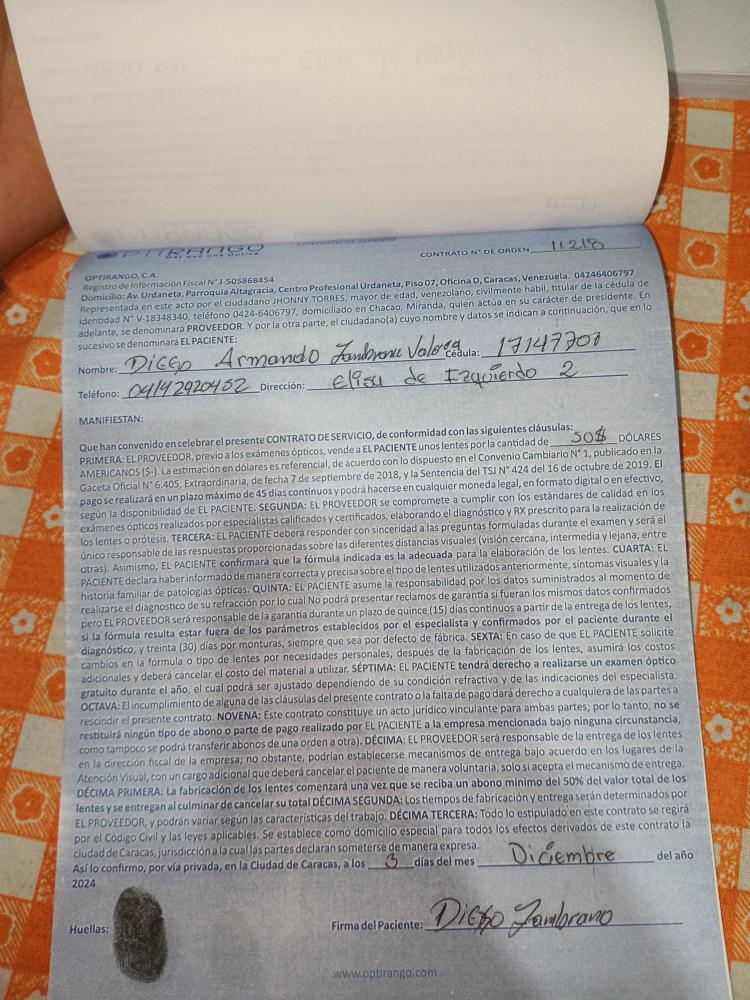 OPTIRANGO
CONTRATO N° DE ORDEN 11218
OPTIRANGO, C.A.
Registro de Información Fiscal N° J-505868454
Domicilio: Av. Urdaneta, Parroquia Altagracia, Centro Profesional Urdaneta, Piso 07, Oficina D, Caracas, Venezuela. 04246406797
Representada en este acto por el ciudadano JHONNY TORRES, mayor de edad, venezolano, civilmente hábil, titular de la cédula de
identidad N° V-18348340, teléfono 0424-6406797, domiciliado en Chacao, Miranda, quien actúa en su carácter de presidente. En
adelante, se denominará PROVEEDOR. Y por la otra parte, el ciudadano(a) cuyo nombre y datos se indican a continuación, que en lo
sucesivo se denominará EL PACIENTE:
Nombre: Diego Armando Zambrano Cédula: 17147707
Teléfono: 04142920452 Dirección: Elisa de Izquierdo 2
MANIFIESTAN:
Que han convenido en celebrar el presente CONTRATO DE SERVICIO, de conformidad con las siguientes cláusulas:
PRIMERA: EL PROVEEDOR, previo a los exámenes ópticos, vende a EL PACIENTE unos lentes por la cantidad de 50$ DÓLARES
AMERICANOS ($-). La estimación en dólares es referencial, de acuerdo con lo dispuesto en el Convenio Cambiario N° 1, publicado en la
Gaceta Oficial N° 6.405, Extraordinaria, de fecha 7 de septiembre de 2018, y la Sentencia del TSJ N° 424 del 16 de octubre de 2019. El
pago se realizará en un plazo máximo de 45 días continuos y podrá hacerse en cualquier moneda legal, en formato digital o en efectivo,
según la disponibilidad de EL PACIENTE. SEGUNDA: EL PROVEEDOR se compromete a cumplir con los estándares de calidad en los
exámenes ópticos realizados por especialistas calificados y certificados, elaborando el diagnóstico y RX prescrito para la realización de
los lentes o prótesis. TERCERA: EL PACIENTE deberá responder con sinceridad a las preguntas formuladas durante el examen y será el
único responsable de las respuestas proporcionadas sobre las diferentes distancias visuales (visión cercana, intermedia y lejana, entre
otras). Asimismo, EL PACIENTE confirmará que la fórmula indicada es la adecuada para la elaboración de los lentes. CUARTA: EL
PACIENTE declara haber informado de manera correcta y precisa sobre el tipo de lentes utilizados anteriormente, síntomas visuales y la
historia familiar de patologías ópticas. QUINTA: EL PACIENTE asume la responsabilidad por los datos suministrados al momento de
realizarse el diagnostico de su refracción por lo cual No podrá presentar reclamos de garantía si fueran los mismos datos confirmados
pero EL PROVEEDOR será responsable de la garantía durante un plazo de quince (15) días continuos a partir de la entrega de los lentes,
si la fórmula resulta estar fuera de los parámetros establecidos por el especialista y confirmados por el paciente durante el
diagnóstico, y treinta (30) días por monturas, siempre que sea por defecto de fábrica. SEXTA: En caso de que EL PACIENTE solicite
cambios en la fórmula o tipo de lentes por necesidades personales, después de la fabricación de los lentes, asumirá los costos
adicionales y deberá cancelar el costo del material a utilizar. SÉPTIMA: EL PACIENTE tendrá derecho a realizarse un examen óptico
gratuito durante el año, el cual podrá ser ajustado dependiendo de su condición refractiva y de las indicaciones del especialista.
OCTAVA: El incumplimiento de alguna de las cláusulas del presente contrato o la falta de pago dará derecho a cualquiera de las partes a
rescindir el presente contrato. NOVENA: Este contrato constituye un acto jurídico vinculante para ambas partes; por lo tanto, no se
restituirá ningún tipo de abono o parte de pago realizado por EL PACIENTE a la empresa mencionada bajo ninguna circunstancia,
como tampoco se podrá transferir abonos de una orden a otra). DÉCIMA: EL PROVEEDOR será responsable de la entrega de los lentes
en la dirección fiscal de la empresa; no obstante, podrían establecerse mecanismos de entrega bajo acuerdo en los lugares de la
Atención Visual, con un cargo adicional que deberá cancelar el paciente de manera voluntaria, solo si acepta el mecanismo de entrega.
DÉCIMA PRIMERA: La fabricación de los lentes comenzará una vez que se reciba un abono mínimo del 50% del valor total de los
lentes y se entregan al culminar de cancelar su total DÉCIMA SEGUNDA: Los tiempos de fabricación y entrega serán determinados por
EL PROVEEDOR, y podrán variar según las características del trabajo. DÉCIMA TERCERA: Todo lo estipulado en este contrato se regirá
por el Código Civil y las leyes aplicables. Se establece como domicilio especial para todos los efectos derivados de este contrato la
ciudad de Caracas, jurisdicción a la cual las partes declaran someterse de manera expresa.
Así lo confirmo, por vía privada, en la Ciudad de Caracas, a los 3 días del mes Diciembre del año
2024
Huellas: Firma del Paciente: Diego Zambrano
www.optirango.com